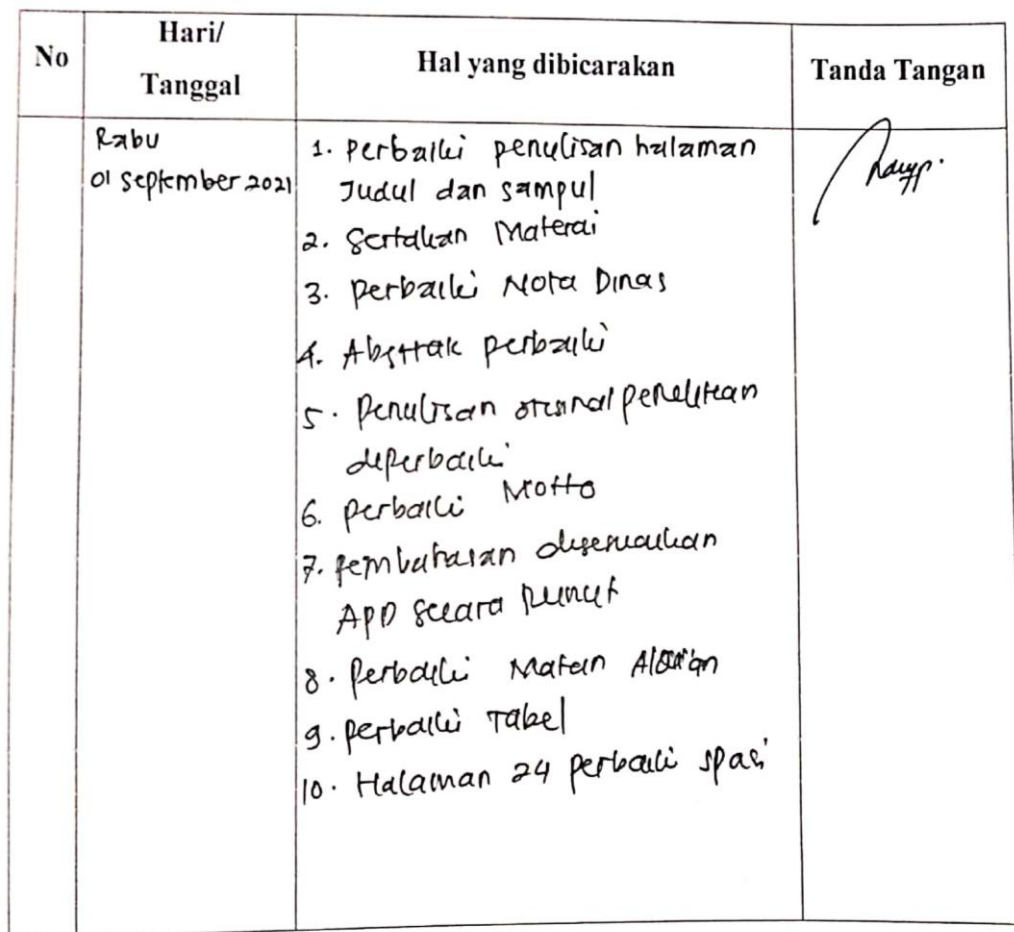 No
Hari/
Tanggal
Hal yang dibicarakan
Tanda Tangan
Rabu
01 September 2021
1. Perbaiki penulisan halaman
Judul dan sampul
2. Sertakan Materai
3. Perbaiki Nota Dinas
4. Abstrak perbaiki
5. Penulisan orisinal penelitian
diperbaiki
6. Perbaiki Motto
7. Pembahasan disesuaikan
APD secara runut
8. Perbaiki Materi
9. Perbaiki Tabel
10. Halaman 24 perbaiki spasi